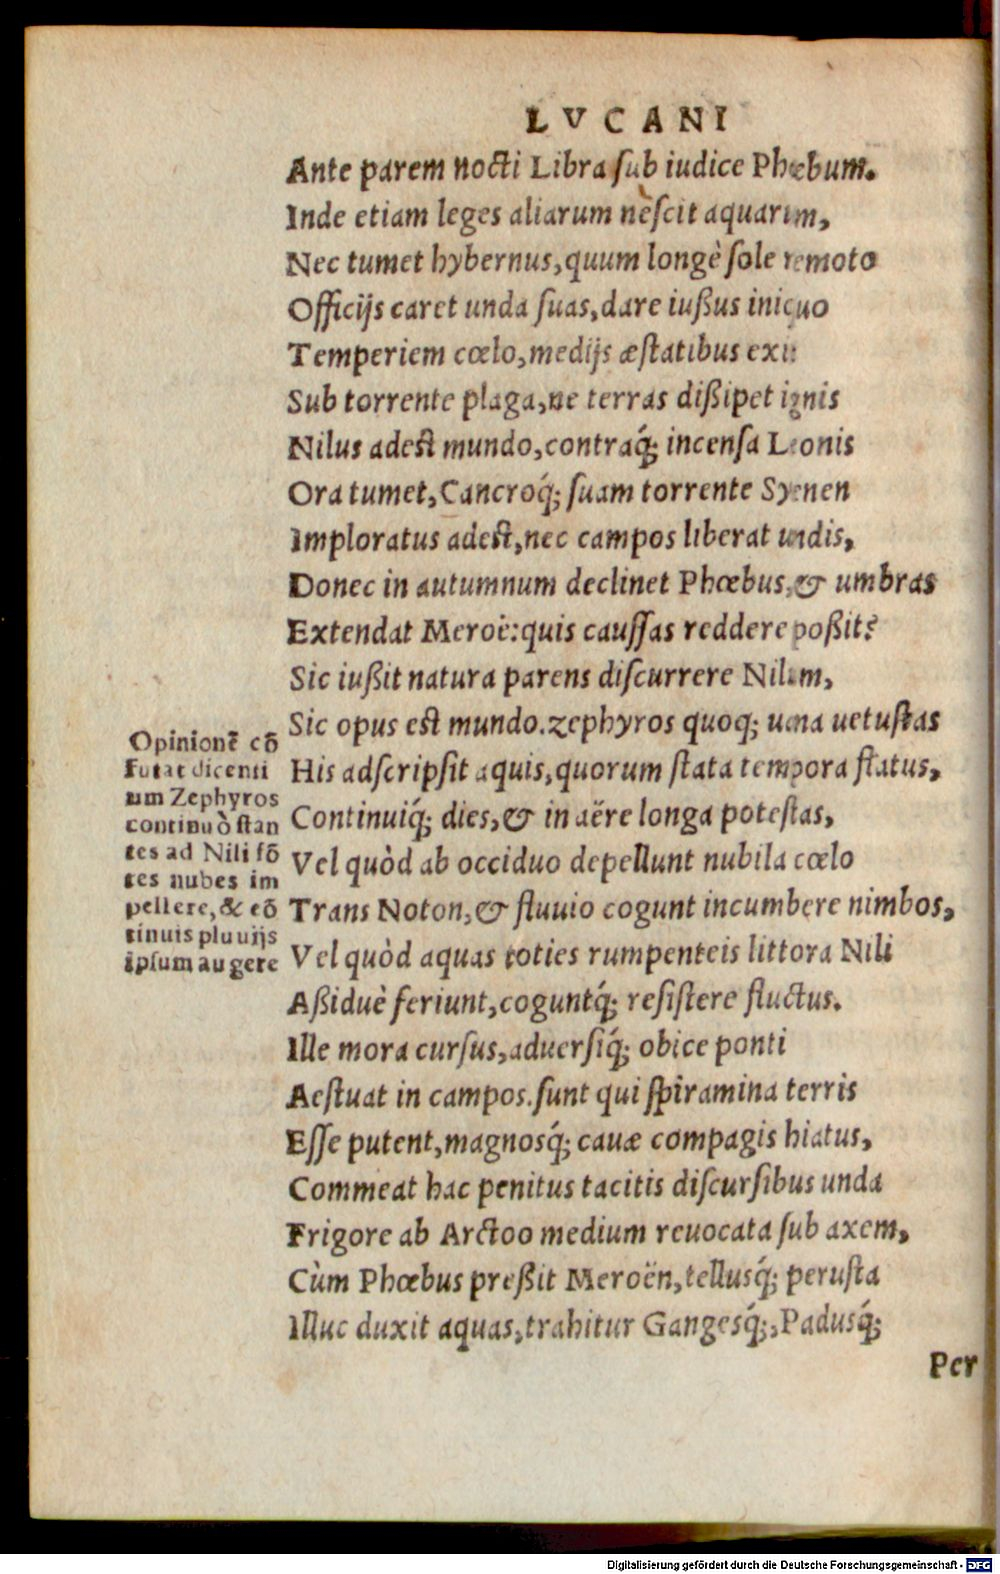 LVCANI
Ante parem nocti Libra sub iudice Phœbum.
Inde etiam leges aliarum nescit aquarum,
Nec tumet hybernus, quum longè sole remoto
Officijs caret unda suas, dare iußus iniquo
Temperiem cœlo, medijs æstatibus exit
Sub torrente plaga, ne terras dißipet ignis
Nilus adest mundo, contraq́; incensa Leonis
Ora tumet, Cancroq́; suam torrente Syenen
Imploratus adest, nec campos liberat undis,
Donec in autumnum declinet Phœbus, & umbras
Extendat Meroë: quis caussas reddere poßit?
Sic iußit natura parens discurrere Nilum,
Sic opus est mundo. zephyros quoq; uana uetustas
His adscripsit aquis, quorum stata tempora flatus,
Continuiq́; dies, & in aëre longa potestas,
Vel quòd ab occiduo depellunt nubila cœlo
Trans Noton, & fluuio cogunt incumbere nimbos,
Vel quòd aquas toties rumpenteis littora Nili
Aßiduè feriunt, coguntq́; resistere fluctus.
Ille mora cursus, aduersiq́; obice ponti
Aestuat in campos. sunt qui spiramina terris
Esse putent, magnosq́; cauæ compagis hiatus,
Commeat hac penitus tacitis discursibus unda
Frigore ab Arctoo medium reuocata sub axem,
Cùm Phœbus preßit Meroën, tellusq́; perusta
Illuc duxit aquas, trahitur Gangesq́;, Padusq́;
Per
Opinionẽ cõ
futat dicenti
um Zephyros
continuò stan
tes ad Nili fõ
tes nubes im
pellere, & cõ
tinuis pluuijs
ipsum augere
Digitalisierung gefördert durch die Deutsche Forschungsgemeinschaft - DFG